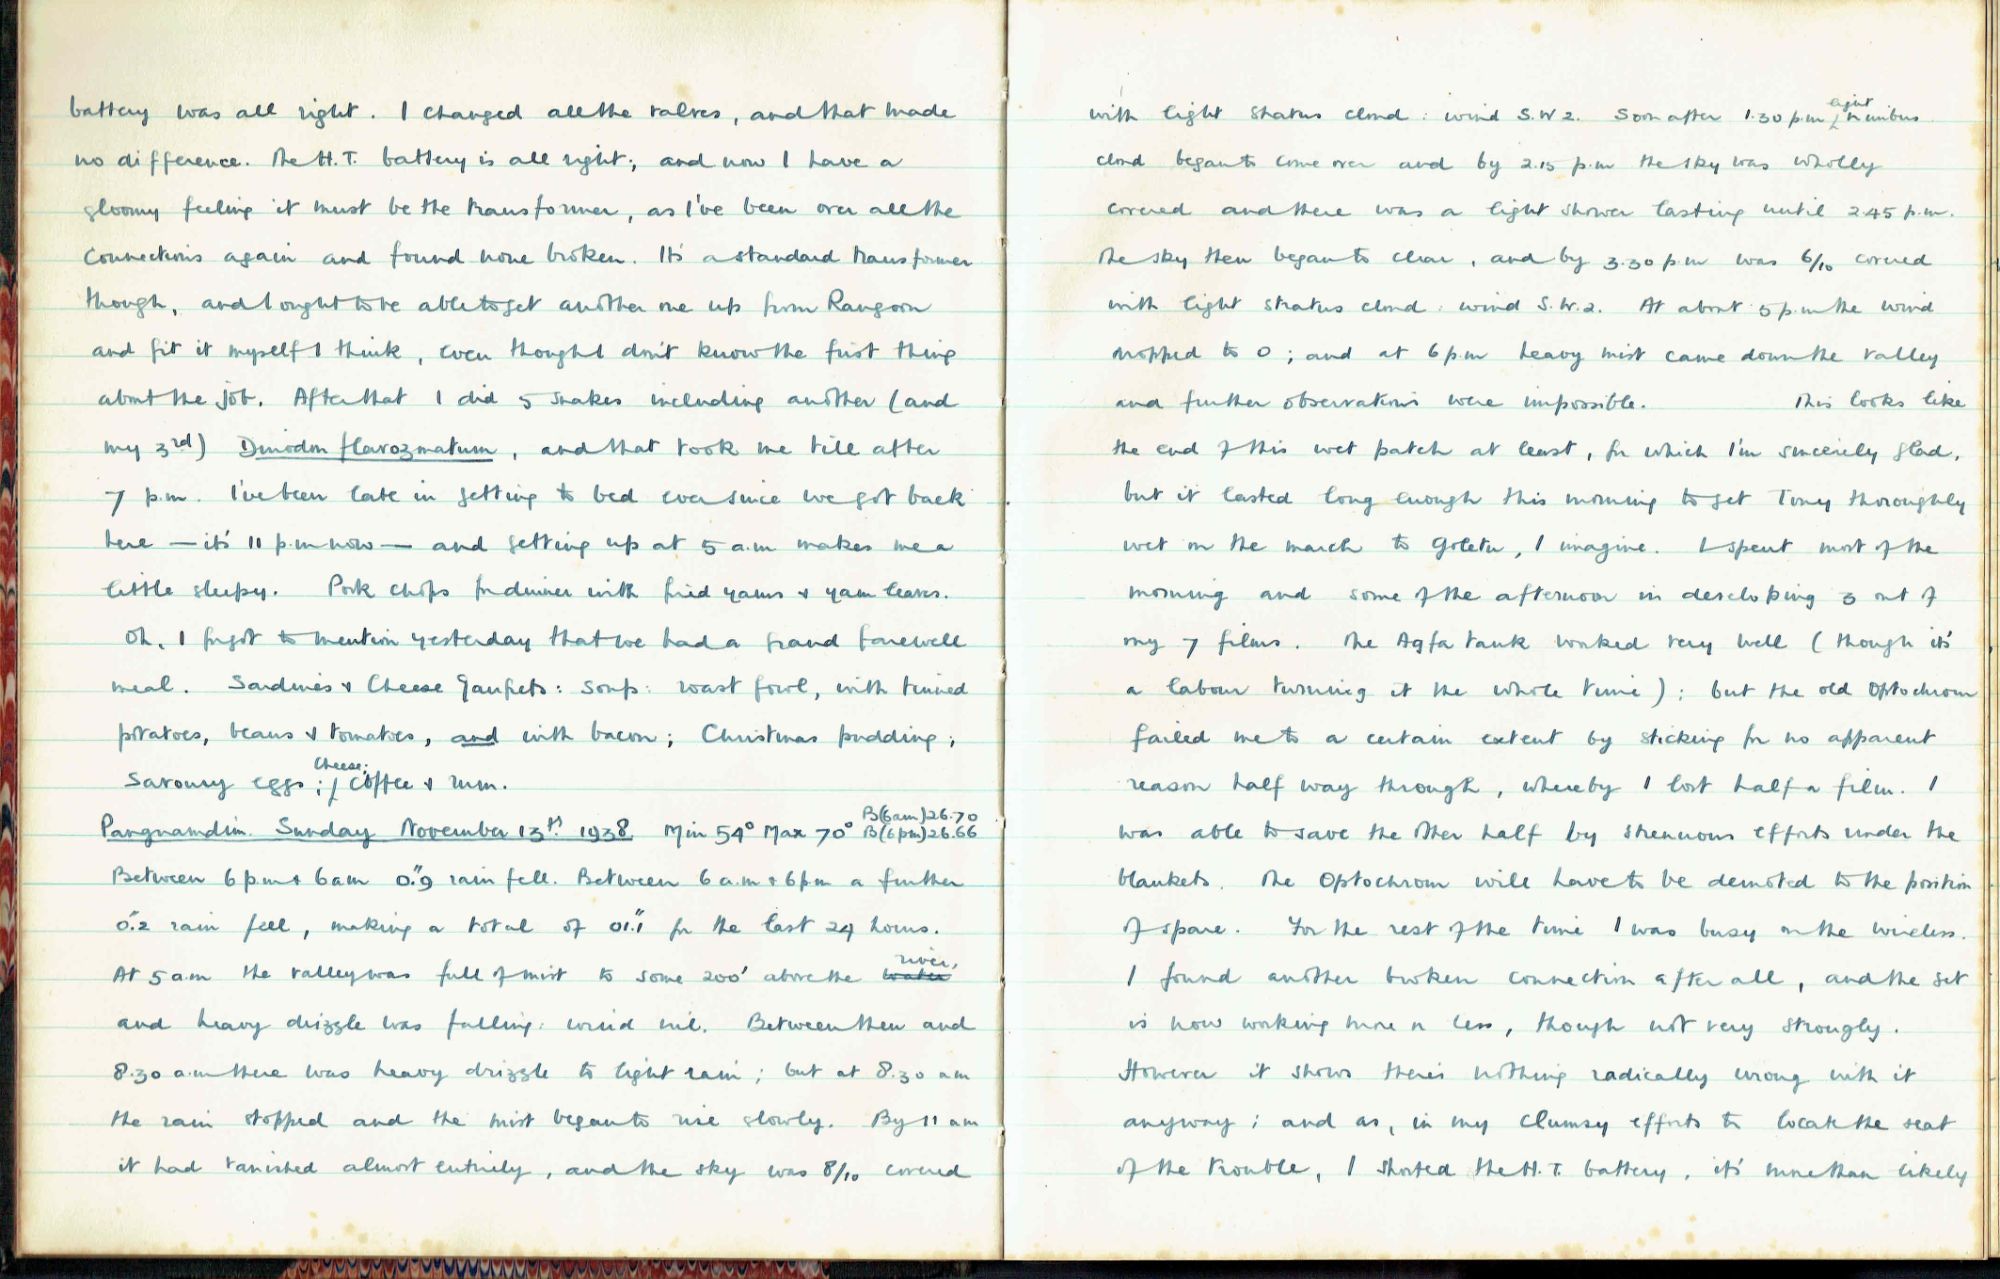 battery was all right. I changed all the valves, and that made
no difference. The H.T. battery is all right; and now I have a
gloomy feeling it must be the transformer, as I've been over all the
connections again and found none broken. It's a standard transformer
though, and I ought to be able to get another one up from Rangoon
and fit it myself I think, even though I don't know the first thing
about the job. After that I did 5 snakes including another (and
my 3rd) Dinodon flavozonatum, and that took me till after
7 p.m. I've been late in getting to bed ever since we got back
here — it's 11 p.m now — and getting up at 5 a.m makes me a
little sleepy. Pork chops for dinner with fried yams & yam leaves.
Oh, I forgot to mention yesterday that we had a grand farewell
meal. Sardines & Cheese : Soup : roast fowl, with tinned
potatoes, beans & tomatoes, and with bacon; Christmas pudding;
Savoury eggs; Cheese; Coffee & rum.
Pangnamdim. Sunday November 13th. 1938 Min 54° Max 70° B(6am)26.70 B(6pm)26.66
Between 6 p.m & 6 am 0."9 rain fell. Between 6 a.m & 6 pm a further
0."2 rain fell, making a total of 01."1 for the last 24 hours.
At 5 a.m the valley was full of mist to some 200' above the water river,
and heavy drizzle was falling: wind nil. Between then and
8.30 a.m there was heavy drizzle to light rain; but at 8.30 am
the rain stopped and the mist began to rise slowly. By 11 am
it had vanished almost entirely, and the sky was 8/10 covered
with light stratus cloud : wind S.W 2. Soon after 1.30 p.m light nimbus
cloud began to come over and by 2.15 p.m the sky was wholly
covered and there was a light shower lasting until 2.45 p.m.
The sky then began to clear, and by 3.30 p.m was 6/10 covered
with light stratus cloud : wind S.W.2. At about 5 p.m the wind
dropped to 0; and at 6 p.m heavy mist came down the valley
and further observations were impossible. This looks like
the end of this wet patch at least, for which I'm sincerely glad,
but it lasted long enough this morning to get Tony thoroughly
wet on the march to Goletu, I imagine. I spent most of the
morning and some of the afternoon in developing 3 out of
my 7 films. The Agfa tank worked very well (though it's
a labour turning it the whole time); but the old Optochrom
failed me to a certain extent by sticking for no apparent
reason half way through, whereby I lost half a film. I
was able to save the other half by strenuous efforts under the
blankets. The Optochrom will have to be demoted to the position
of spare. For the rest of the time I was busy on the wireless.
I found another broken connection after all, and the set
is now working more or less, though not very strongly.
However it shows there's nothing radically wrong with it
anyway; and as, in my clumsy efforts to locate the seat
of the trouble, I shorted the H.T. battery, it's more than likely